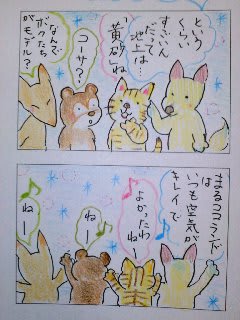 という
くらい
すごいん
だって
地上は…
「黄砂」ね
コーサ?
なんで
ボクたち
がモデル?
まるココランド
は
いつも空気が
キレイで
よかったわ
ねー
ねー
ねー